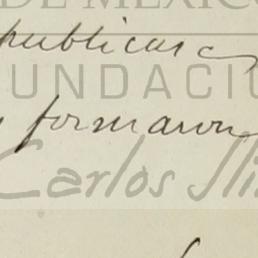 DE MÉXICO
publicas
FUNDACIÓ
formaron
Carlos Sli